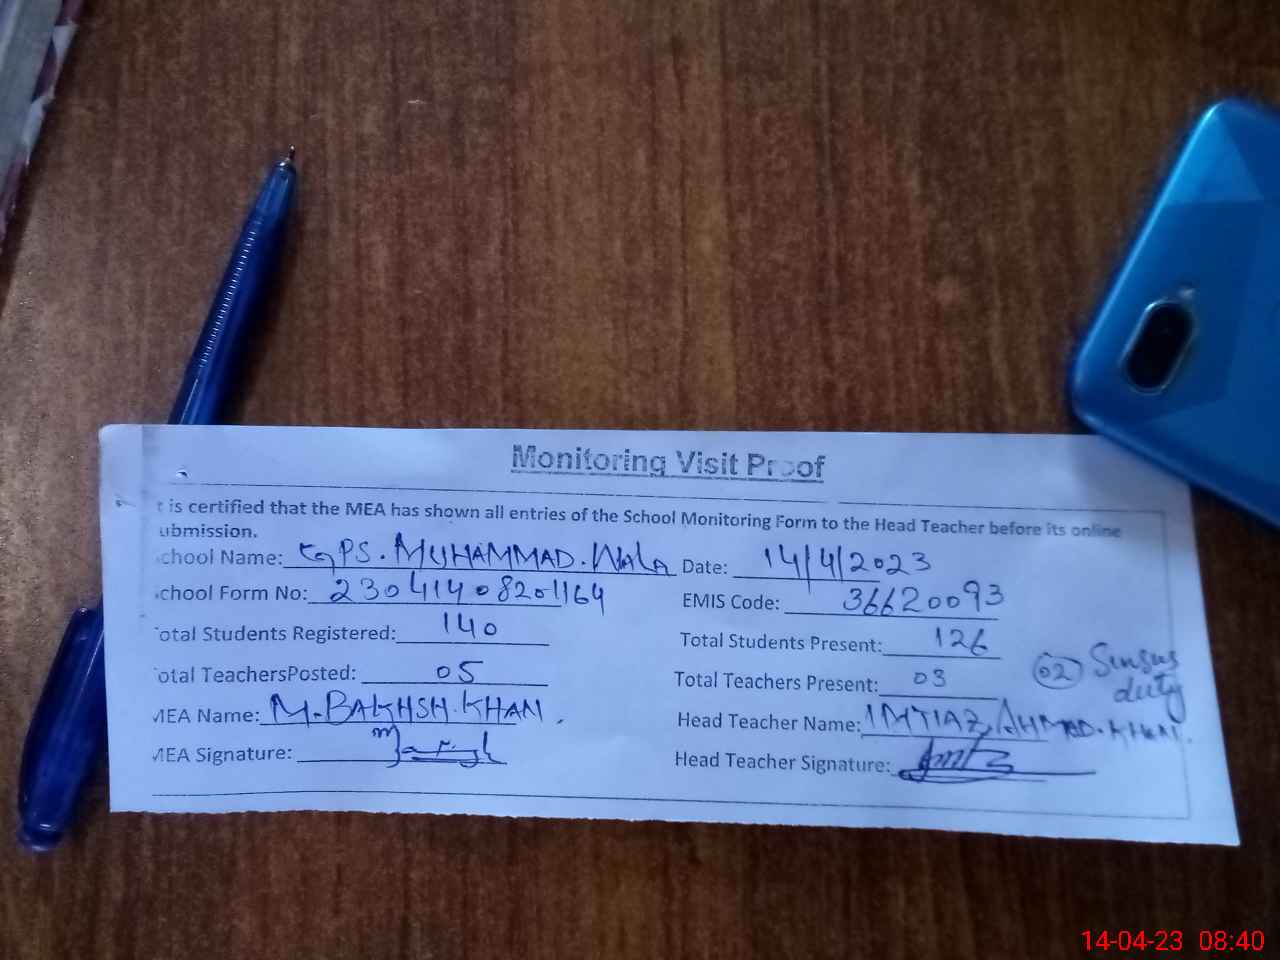 Monitoring Visit Proof
t is certified that the MEA has shown all entries of the School Monitoring Form to the Head Teacher before its online
ubmission.
chool Name: GPS. MUHAMMAD. WALA Date: 14/4/2023
chool Form No: 23041408201164 EMIS Code: 36620093
otal Students Registered: 140 Total Students Present: 126
otal TeachersPosted: 05 Total Teachers Present: 03 02 Sensus duty
MEA Name: M. BAKHSH. KHAN. Head Teacher Name: IMTIAZ AHMAD. KHAN.
MEA Signature: Head Teacher Signature:
14-04-23 08:40